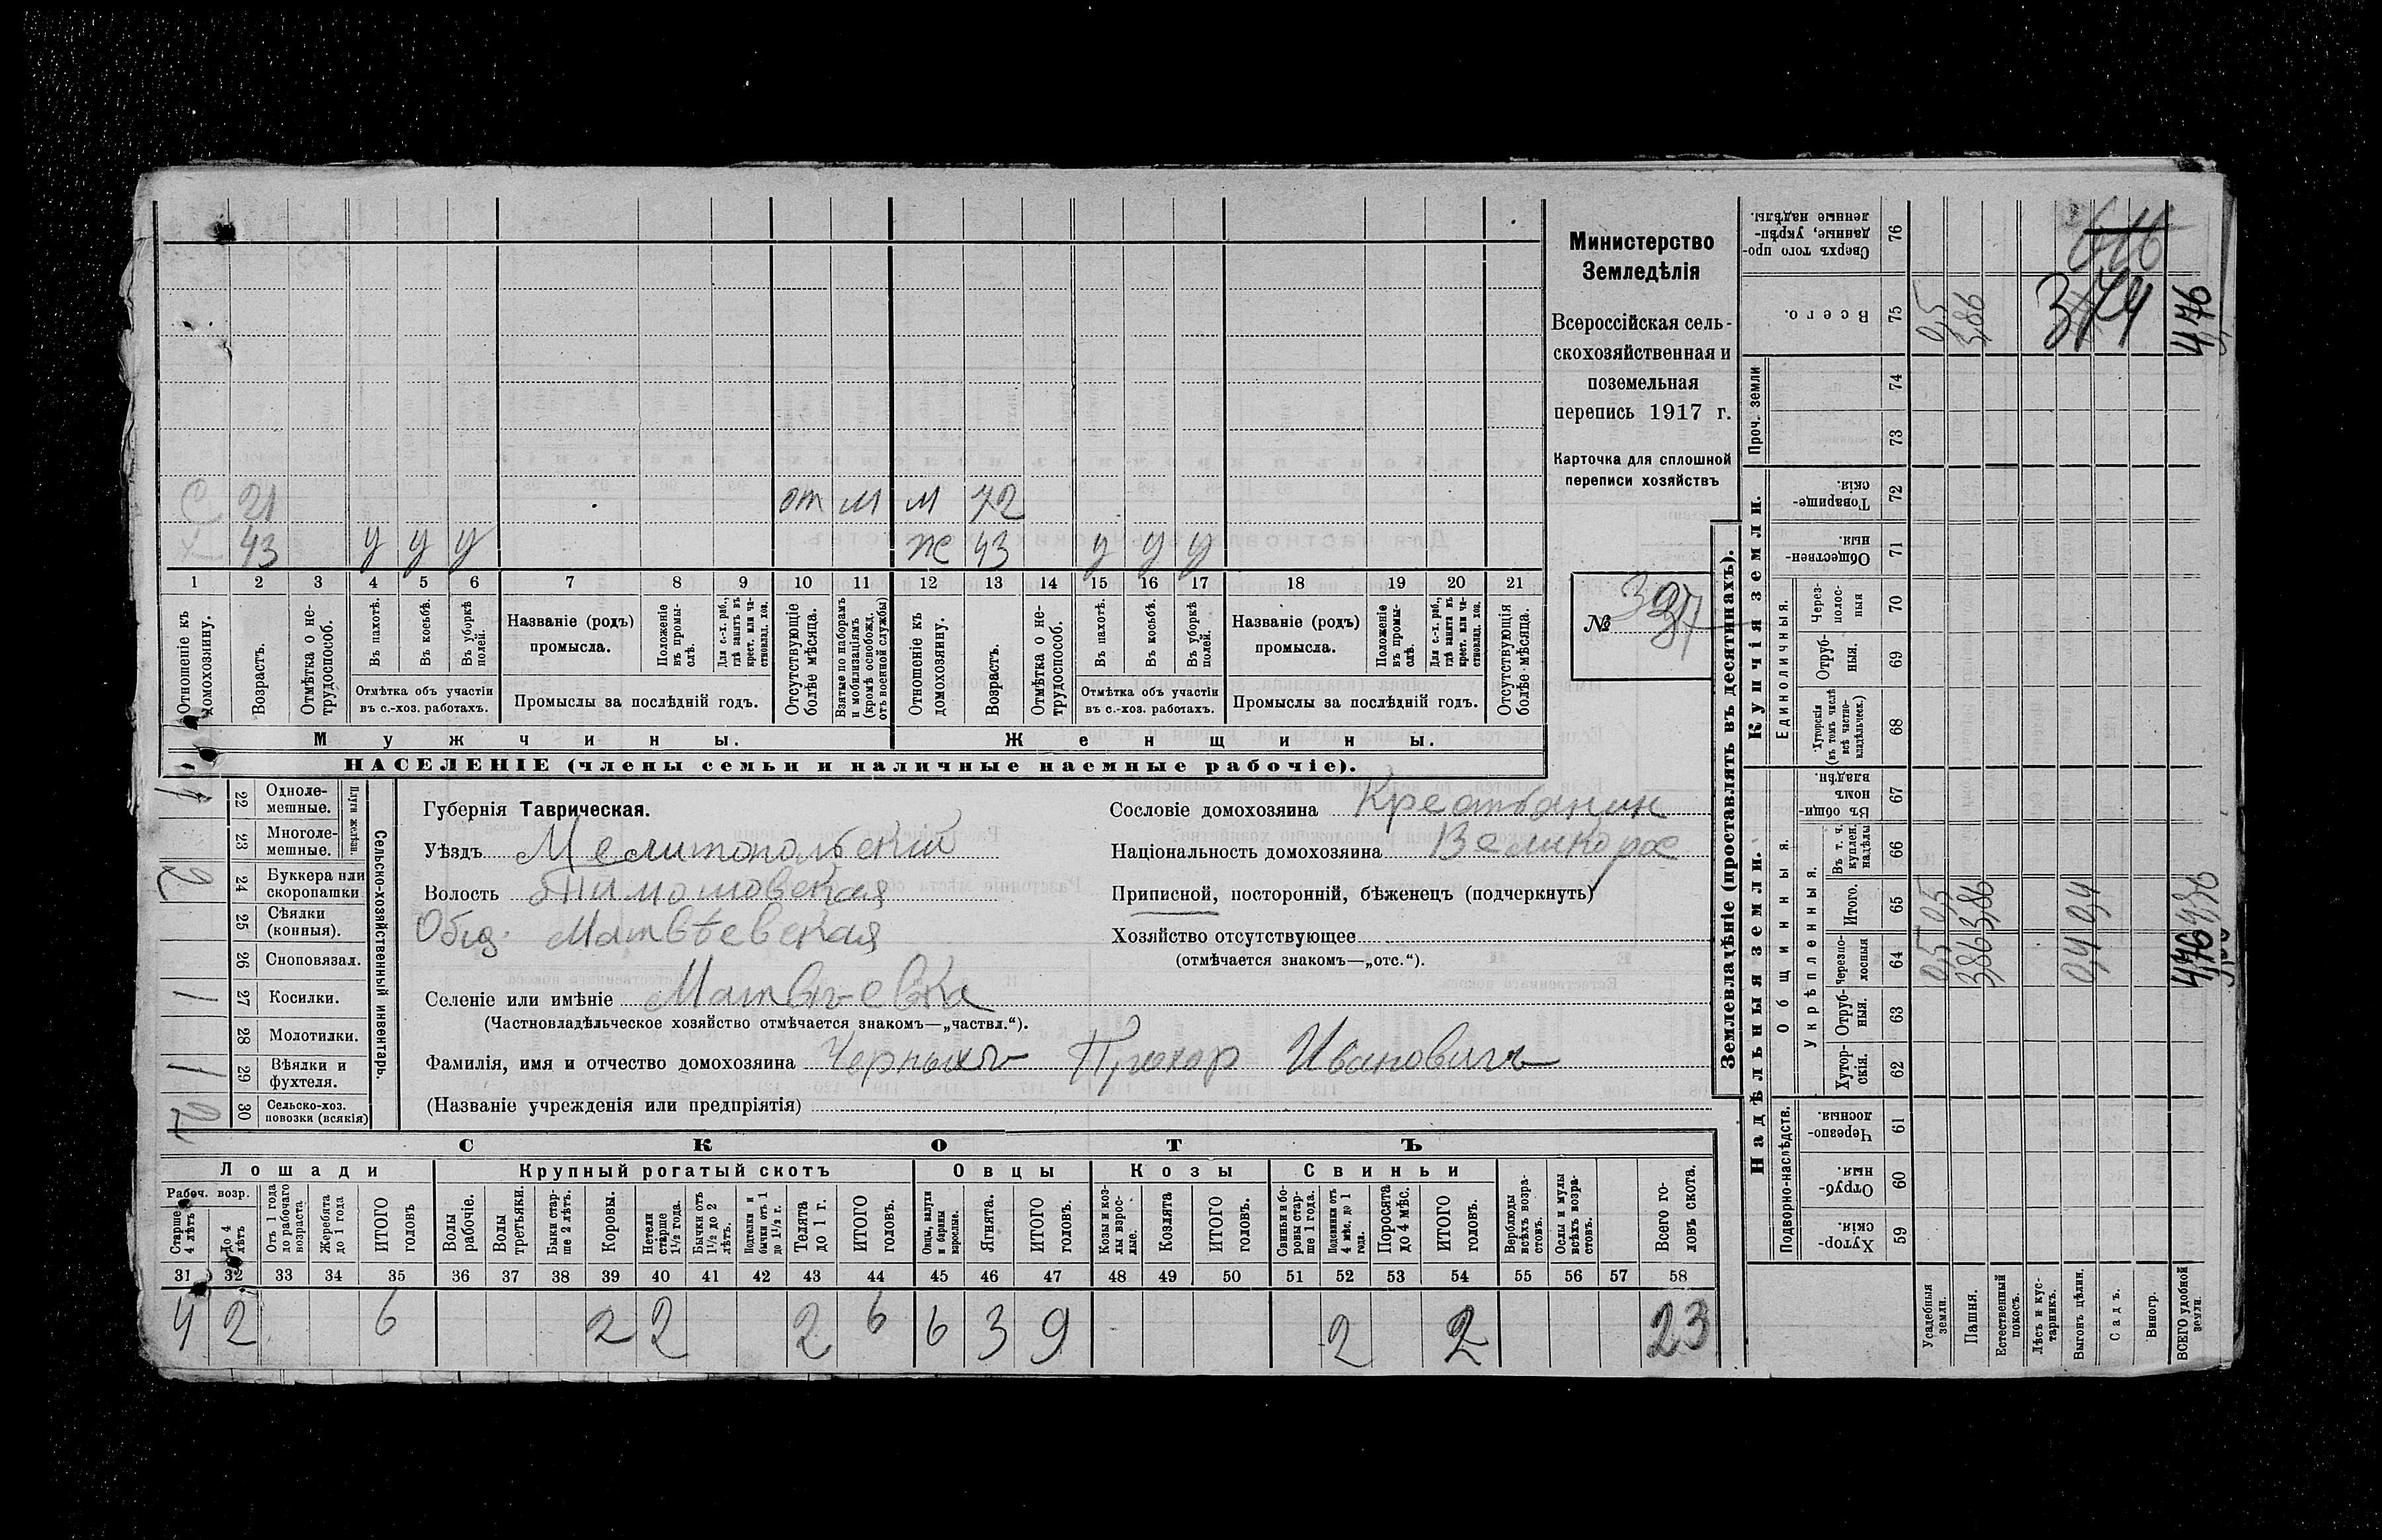 Министерство
Земледѣлія
Всероссійская сель-
скохозяйственная и
поземельная
перепись 1917 г.
Карточка для сплошной
переписи хозяйствъ
№
С 21 от м м 72
Х 43 у у у ж 43 у у у
1 2 3 4 5 6 7 8 9 10 11 12 13 14 15 16 17 18 19 20 21
Отношеніе къ домохозяину.
Возрастъ.
Отмѣтка о не-трудоспособ.
Въ пахотѣ.
Въ косьбѣ.
Въ уборкѣ полей.
Отмѣтка объ участіи
въ с.-хоз. работахъ.
Названіе (родъ)
промысла.
Положеніе въ промы-слѣ.
Для с.-х. раб., гдѣ занятъ въ крест. или ча-стновлад. хоз.
Промыслы за послѣдній годъ.
Отсутствующіе болѣе мѣсяца.
Взятые по наборамъ и мобилизаціямъ (кромѣ освобожд. отъ военной службы)
Отношеніе къ домохозяину.
Возрастъ.
Отмѣтка о не-трудоспособ.
Въ пахотѣ.
Въ косьбѣ.
Въ уборкѣ полей.
Отмѣтка объ участіи
въ с.-хоз. работахъ.
Названіе (родъ)
промысла.
Положеніе въ промы-слѣ.
Для с.-х. раб., гдѣ занята въ крест. или ча-стновлад. хоз.
Промыслы за послѣдній годъ.
Отсутствующія болѣе мѣсяца.
Мужчины. Женщины.
НАСЕЛЕНІЕ (члены семьи и наличные наемные рабочіе).
Сельско-хозяйственный инвентарь.
Плуги желѣзн.
1 22 Одноле-мешные.
23 Многоле-мешные.
2 24 Буккера или скоропашки
25 Сѣялки (конныя).
26 Сноповязал.
1 27 Косилки.
28 Молотилки.
1 29 Вѣялки и фухтеля.
2 30 Сельско-хоз. повозки (всякія)
Губернія Таврическая.
Уѣздъ Мелитопольскій
Волость Тимошовская
Общ. Матвѣевская
Селеніе или имѣніе Матвѣевка
(Частновладѣльческое хозяйство отмѣчается знакомъ—„частвл.“).
Фамилія, имя и отчество домохозяина Черныхъ Прохор Ивановичъ
(Названіе учрежденія или предпріятія)
Сословіе домохозяина Крестьянин
Національность домохозяина Великорос
Приписной, посторонній, бѣженецъ (подчеркнуть)
Хозяйство отсутствующее
(отмѣчается знакомъ—„отс.“).
СКОТЪ
Лошади Крупный рогатый скотъ Овцы Козы Свиньи
Рабоч. возр.
Старше 4 лѣтъ
До 4 лѣтъ
Отъ 1 года до рабочаго возраста
Жеребята до 1 года
ИТОГО головъ
Волы рабочіе.
Волы третьяки.
Быки стар-ше 2 лѣтъ.
Коровы.
Нетели старше 1½ года.
Бычки отъ 1½ до 2 лѣтъ.
Подтелки и бычки отъ 1 до 1½ г.
Телята до 1 г.
ИТОГО головъ.
Овцы, валухи и бараны взрослые.
Ягнята.
ИТОГО головъ.
Козы и коз-лы взрос-лые.
Козлята
ИТОГО головъ.
Свиньи и бо-ровы стар-ше 1 года.
Подсвинки отъ 4 мѣс. до 1 года.
Поросята до 4 мѣс.
ИТОГО головъ.
Верблюды всѣхъ возра-стовъ.
Ослы и мулы всѣхъ возра-стовъ.
Всего го-ловъ скота.
31 32 33 34 35 36 37 38 39 40 41 42 43 44 45 46 47 48 49 50 51 52 53 54 55 56 57 58
4 2 6 2 2 2 6 6 3 9 2 2 23
Землевладѣніе (проставлять въ десятинахъ).
Купчія земли.
Надѣльныя земли.
Сверхъ того про-данные, укрѣп-ленные надѣлы. 76
Всего. 75 0,5 3,86 4,76
Проч. земли
74
73
Товарище-скія. 72
Обществен-ныя. 71
Единоличныя.
Через-полос-ныя 70
Отруб-ныя. 69
Хуторскія (въ томъ числѣ всѣ частно-владѣльческ.) 68
Общинныя.
Въ общин-номъ владѣн. 67
Укрѣпленныя.
Въ т. ч. куплен. надѣлы 66
Итого. 65 0,5 3,86 0,4
Черезпо-лосныя 64 0,5 3,86 0,4 4,76
Отруб-ныя. 63
Хутор-скія. 62
Подворно-наслѣдств.
Черезпо-лосныя 61
Отруб-ныя. 60
Хутор-скія 59
Усадебныя земли.
Пашня.
Естественный покосъ.
Лѣсъ и кус-тарникъ.
Выгонъ цѣлин.
Садъ.
Виногр.
ВСЕГО удобной земли.